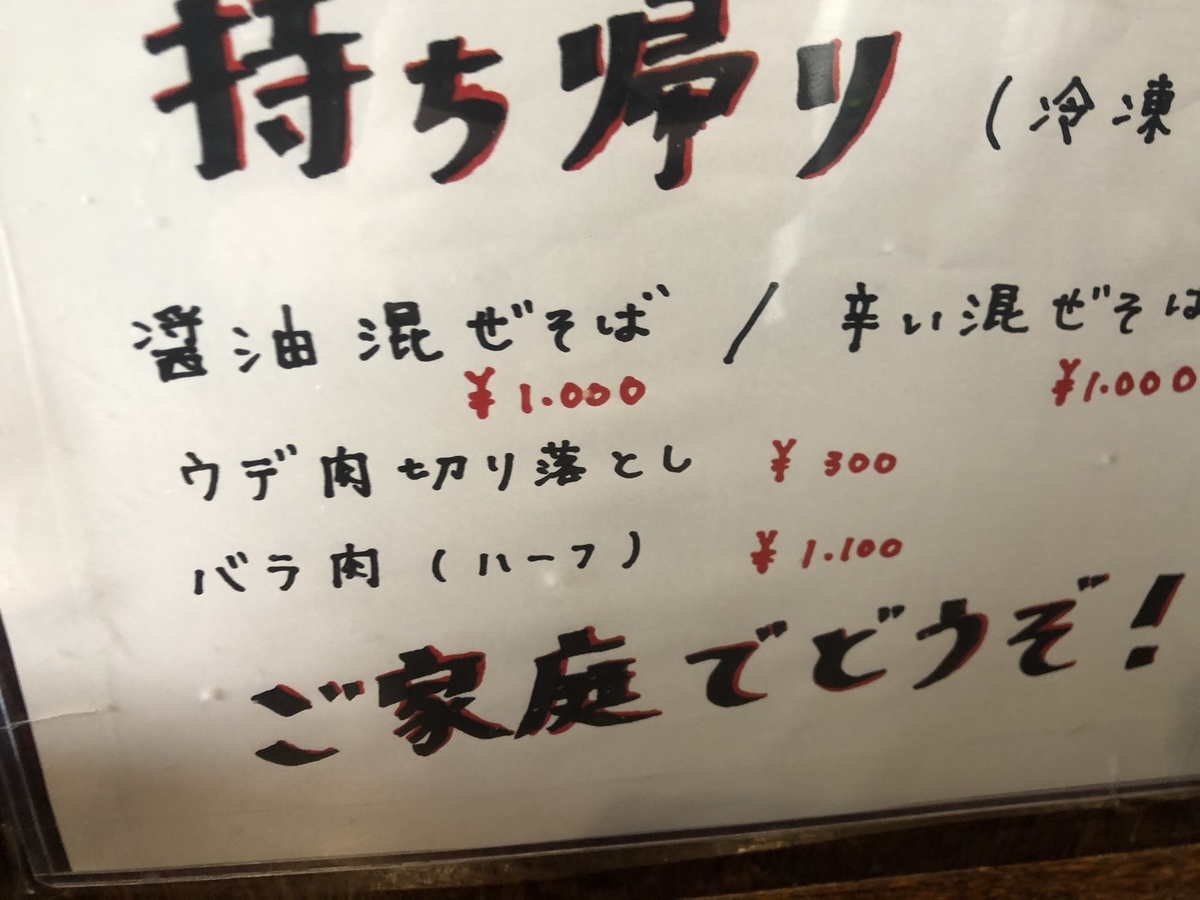 持ち帰り (冷凍
醤油混ぜそば / 辛い混ぜそば
¥1.000 ¥1.000
ウデ肉切り落とし ¥300
バラ肉(ハーフ) ¥1.100
ご家庭でどうぞ!